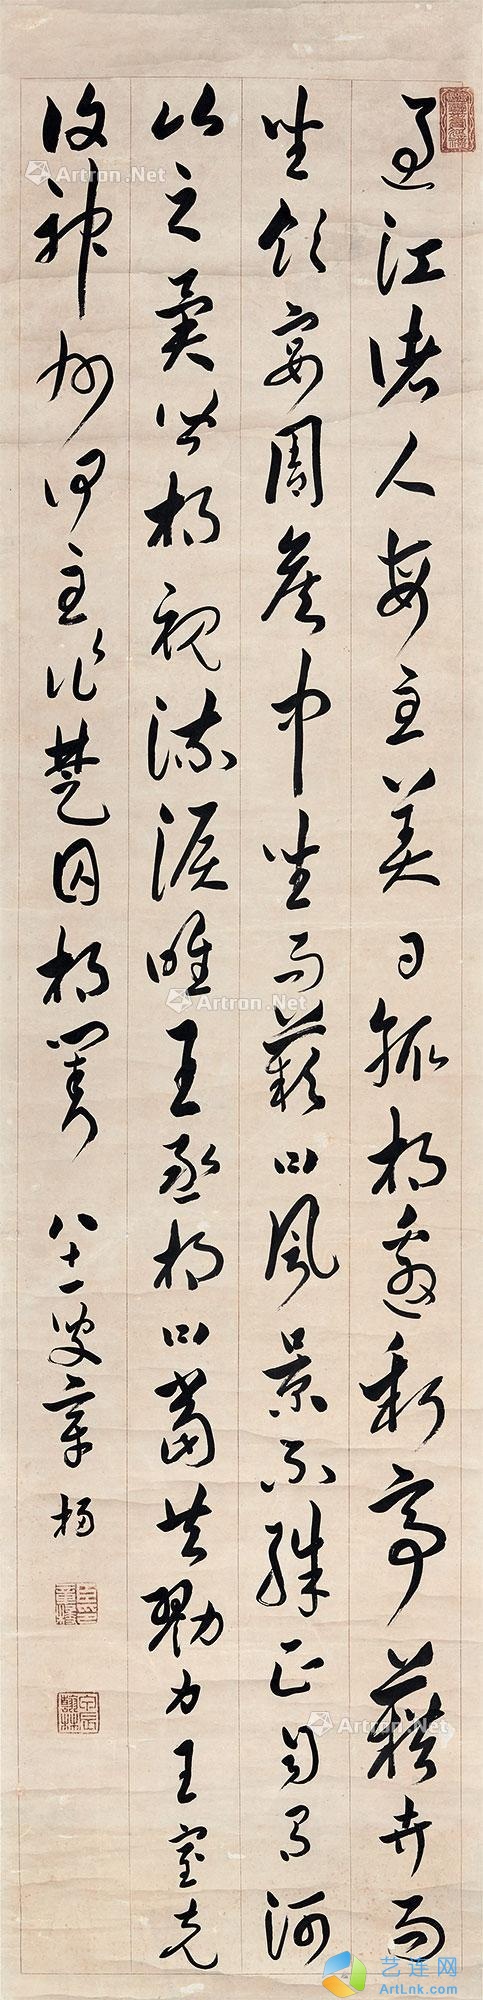 過江諸人每至美日輒相邀新亭藉卉而
坐飲宴周侯中坐而歎曰風景不殊正自有河
山之異皆相視流淚唯王丞相曰當共勠力王室克
復神州何至作楚囚相對 八十一叟
Artron.Net
Artron.Net
Artron.Net
Artron.Net
Artron.Net
Artron.Net
艺连网
ArtLnk.com